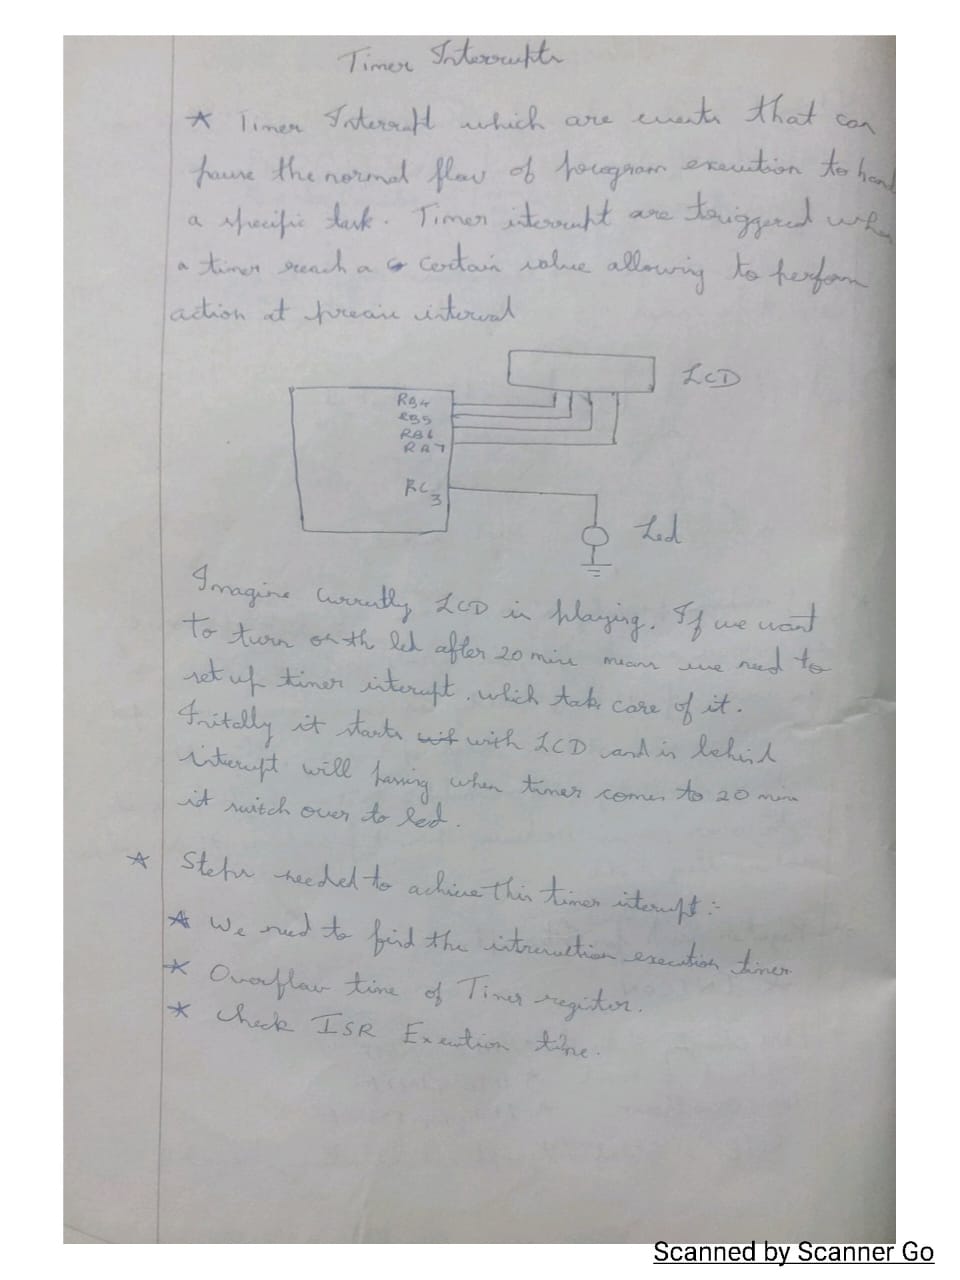 Timer Interrupts
* Timer Interrupt which are events that can
pause the normal flow of program execution to hand
a specific task. Timer interrupt are triggered when
a timer reach a certain value allowing to perform
action at precise interval
LCD
RB4
RB5
RB6
RB7
RC3
Led
Imagine Currently LCD is playing. If we want
to turn on the led after 20 mins means we need to
set up timer interupt, which take care of it.
Initally it starts with LCD and is behind
interupt will passing when timer comes to 20 mins
it switch over to led.
* Steps needed to achieve this timer interupt :-
* We need to find the intrecuction execution timer
* Overflow time of Timer register.
* Check ISR Execution time.
Scanned by Scanner Go